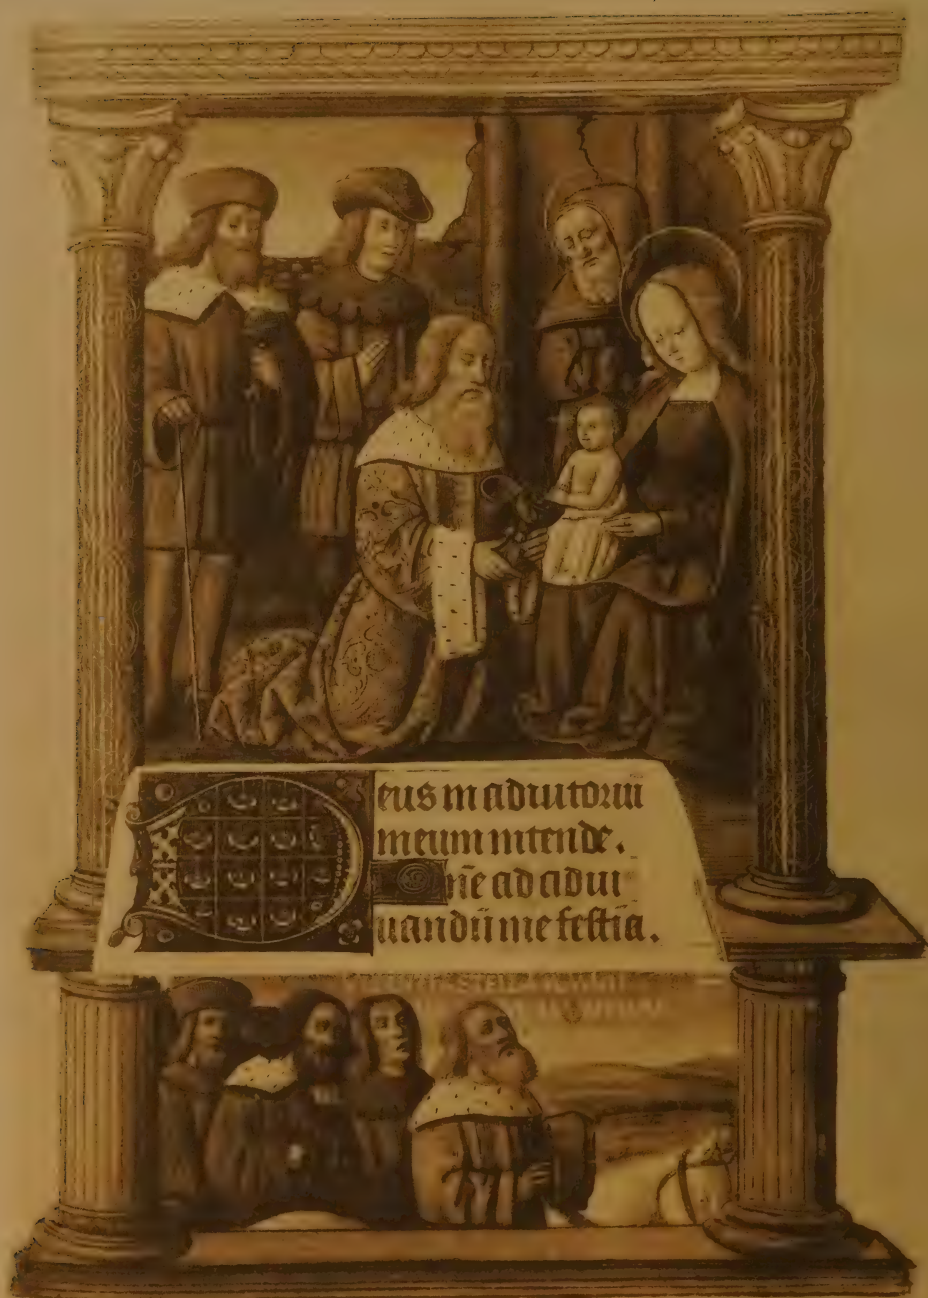 Deus in adiutoriū
meum intende.
Dñe ad adiu
uandū me festia.